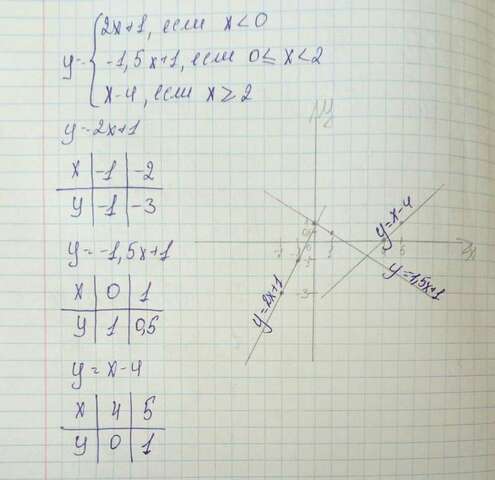 y = { 2x+1, если x < 0
-1,5x+1, если 0 ≤ x < 2
x-4, если x ≥ 2
y=2x+1
x | -1 | -2
y | -1 | -3
y = -1,5x+1
x | 0 | 1
y | 1 | 0,5
y = x-4
x | 4 | 5
y | 0 | 1
y=x-4
y=1,5x+1
y=2x+1
-3